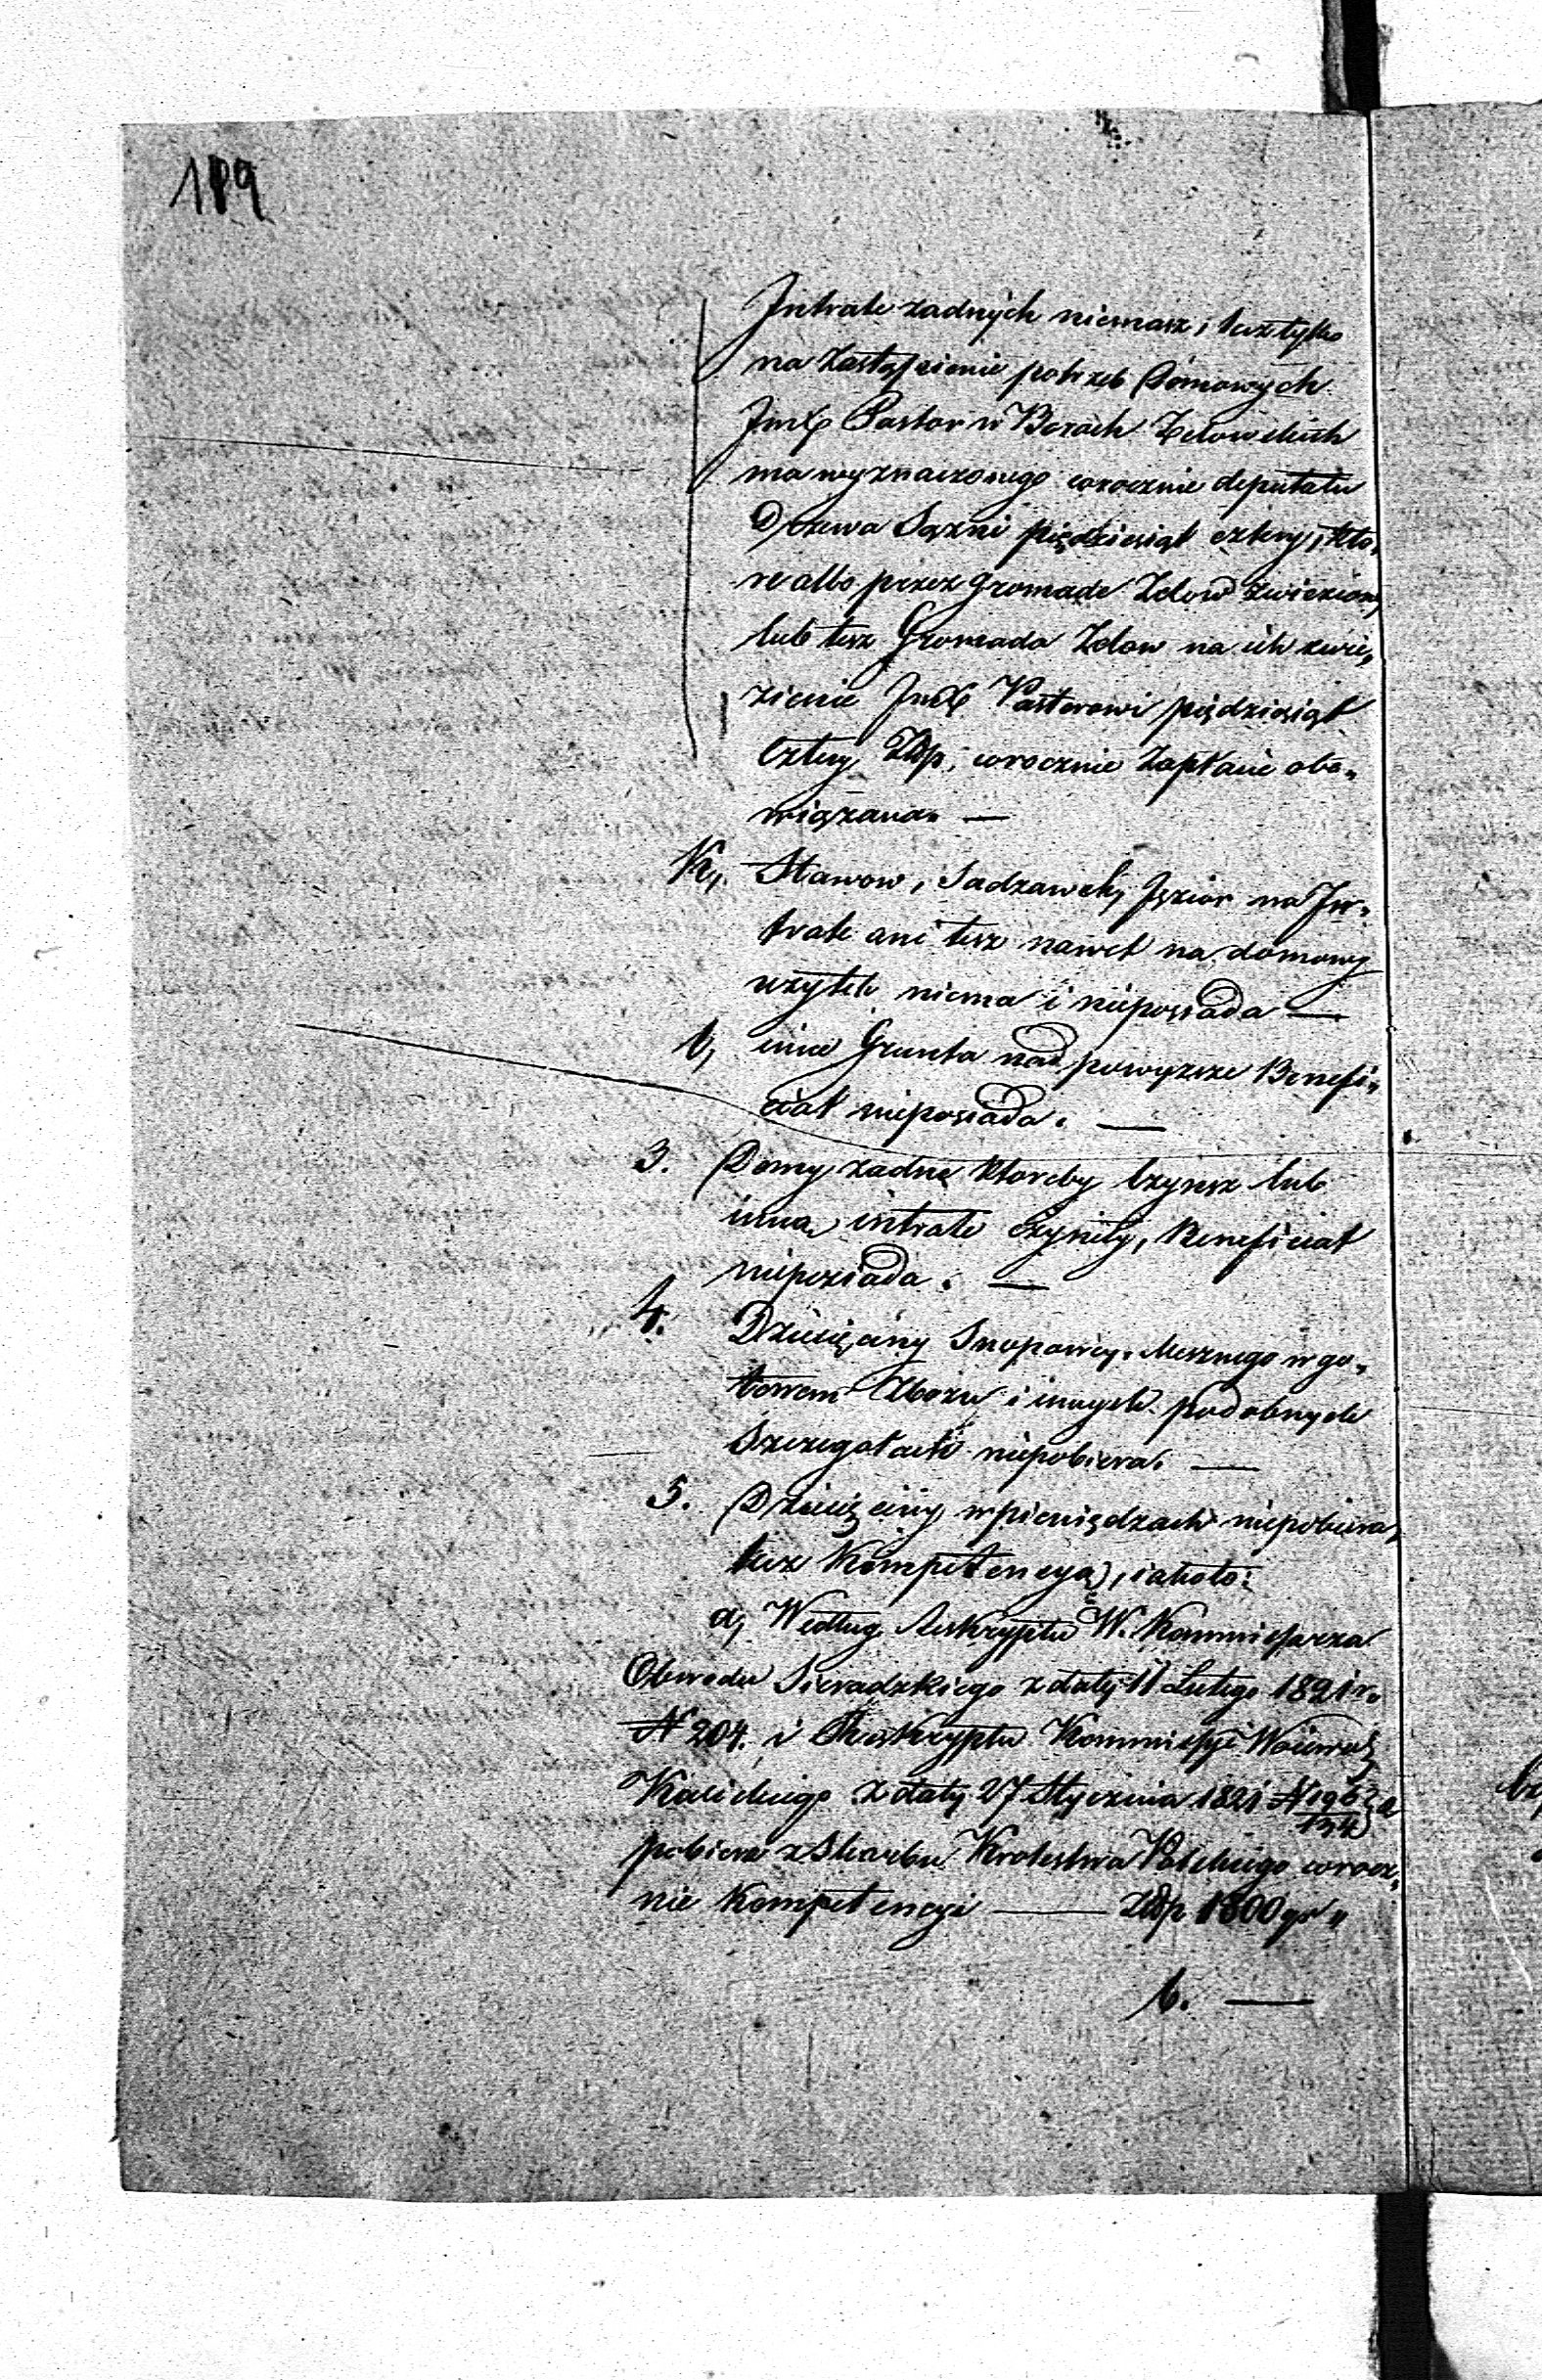 189
Intrate zadnych niemasz, lecz tylko
na zastąpienie potrzeb Domowych
Jmć Pastor w Borach Zelowskich
ma wyznaczonego corocznie deputatu
Drzewa Sązni pięcdziesiąt cztery, kto„
re albo przez gromade Zelow zwiezione
lub tesz Gromada Zelow na ich zwie„
zienie Jmć Pastorowi pięcdziesiąt
Cztery Złłp, corocznie Zapłacić obo„
wiązana. —
K, Stawow, Sadzawek, Jezior na In„
trate ani tesz nawet na domowy
uzytek niema i nieposiada —
l, inne Grunta nad powyzsze Benefi„
ciat nieposiada. —
3. Domy zadne ktoreby Czynsz lub
inną intrate Czyniły, Beneficiat
nieposiada. —
4. Dziesięciny Snopowey, Mesznego w go„
towem Zbozu i innych podobnych
Szczegołach niepobiera. —
5. Dziesięciny w pieniędzach niepobiera,
lecz Kompetencyą, iakoto:
a, Według Reskryptu W. Kommissarza
Obwodu Sieradzkiego z daty 11 Lutego 1821 r.
N 204. i Reskryptu Kommissyi Woiewodz
Kaliskiego z daty 27 Stycznia 1821 N 1963
134
pobiera z Skarbu Krolestwa Polskiego corocz„
nie Kompetencyi — Złłp 1800 gr „
b. —